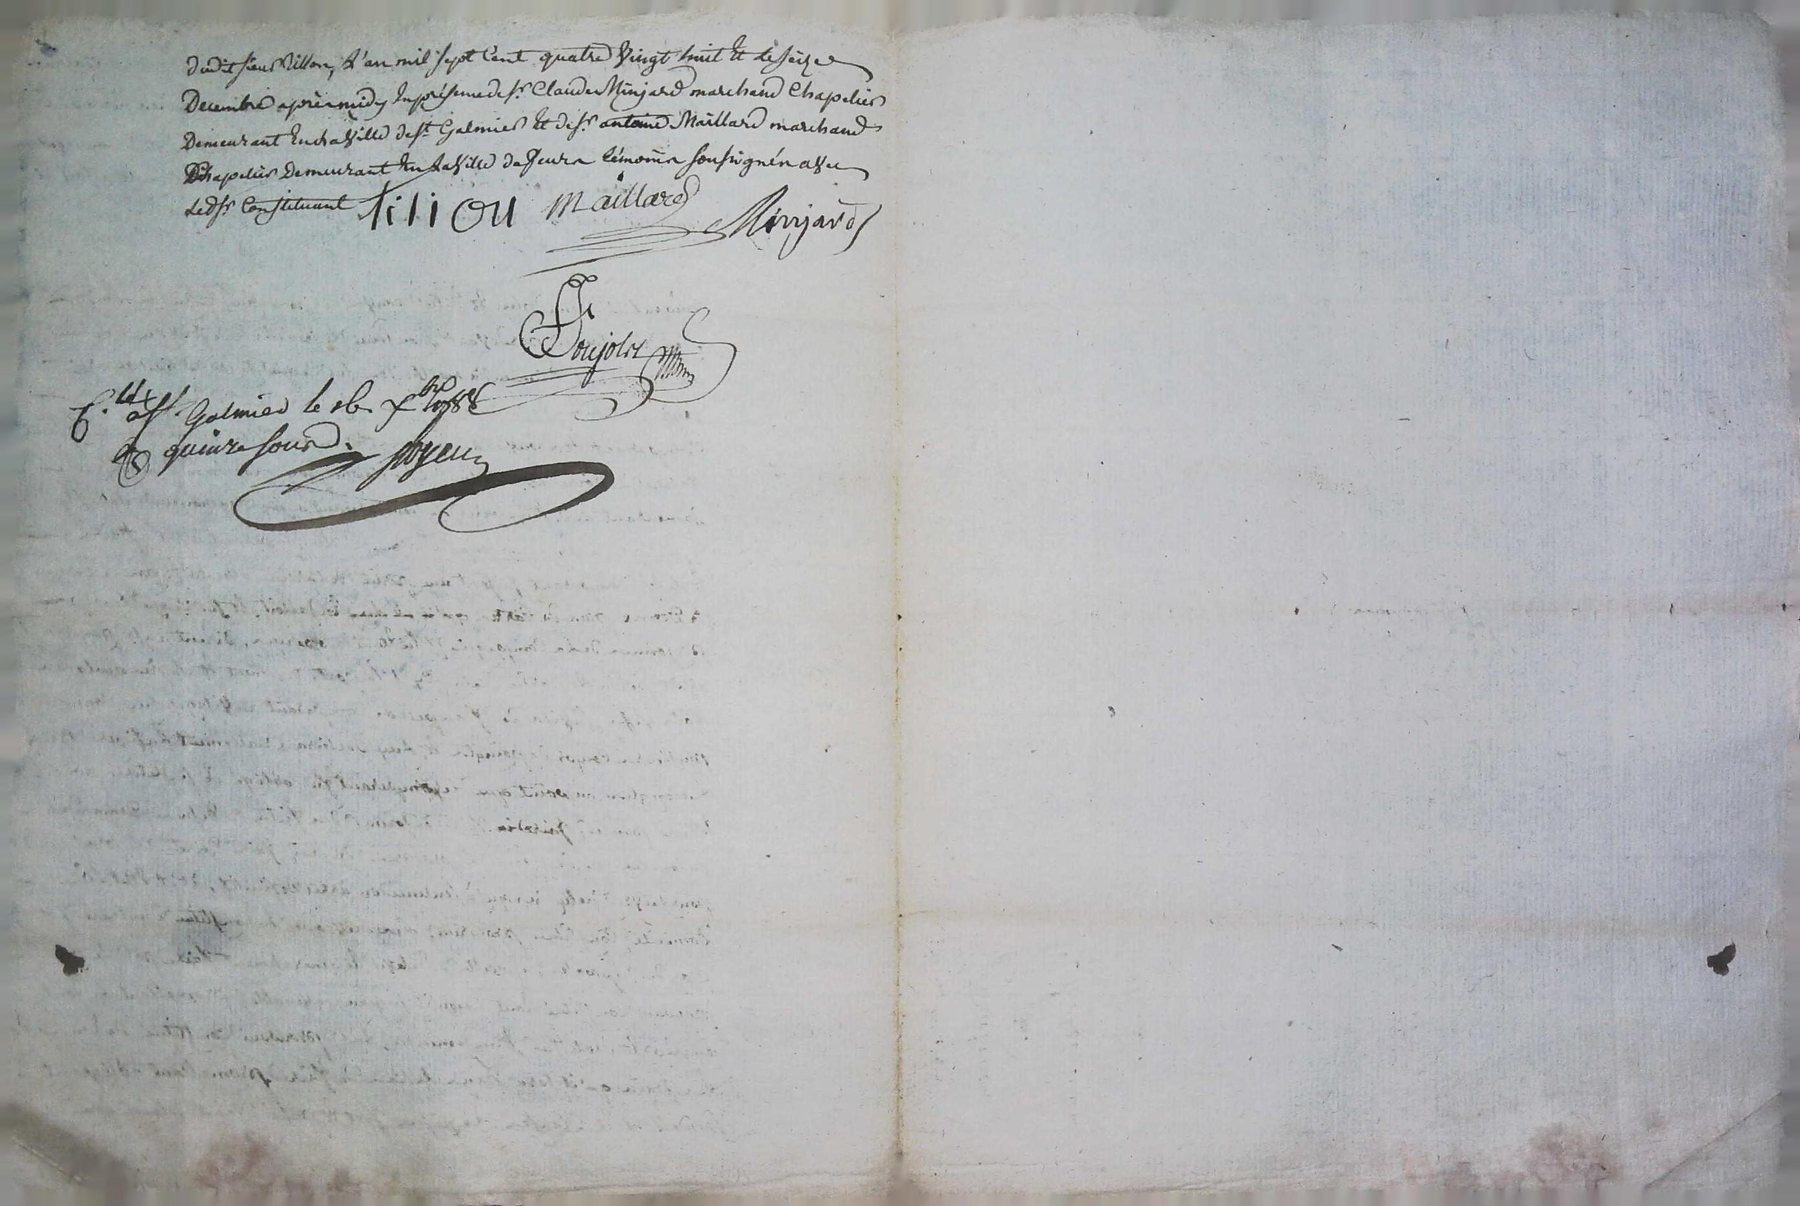 dudit sieur Tillon, L'an mil sept Cent quatre Vingt huit Et le seize
Decembre apres midy En presence de sr. Claude Minjard marchand Chapelier
Demeurant En la Ville de st. Galmier Et de sr. antoine Maillard marchand
Chapelier Demeurant En la Ville de feurs témoins soussignés avec
Ledt sr. Constituant
tiliou Maillard
Minjard
Poujols
C.lé a st. Galmier le 16. Xbre 1788
quinze sous.